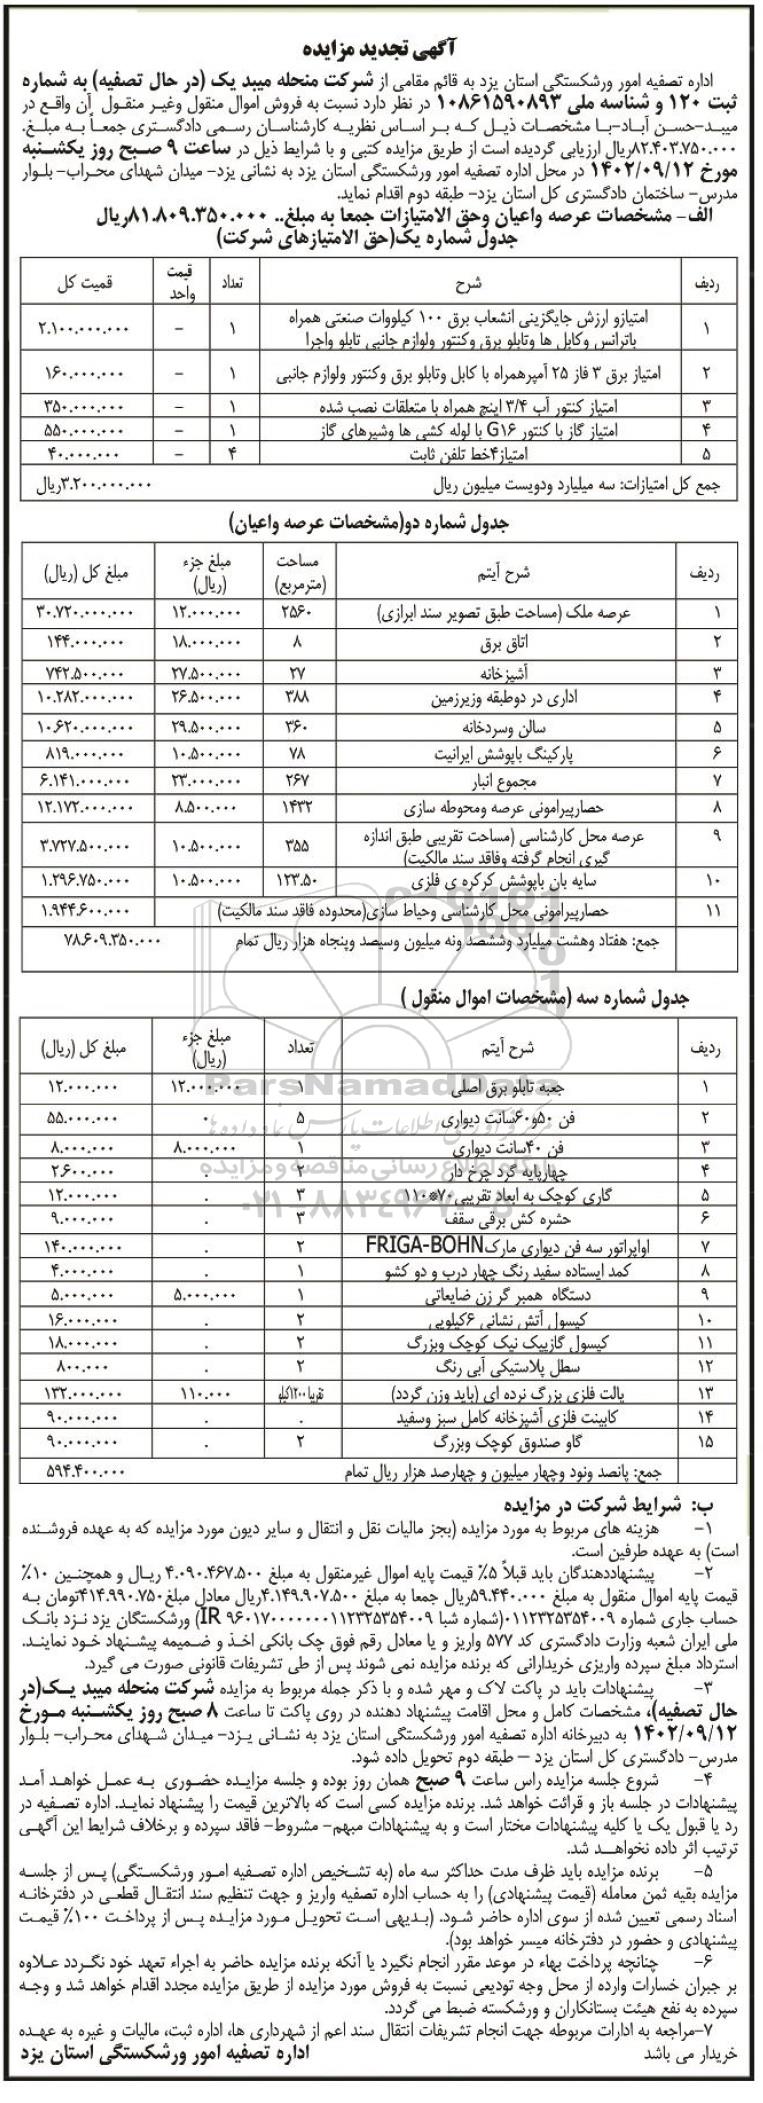 آگهی تجدید مزایده
اداره تصفیه امور ورشکستگی استان یزد به قائم مقامی از شرکت منحله میبد یک (در حال تصفیه) به شماره
ثبت ۱۲۰ و شناسه ملی ۱۰۸۶۱۵۹۰۸۹۳ در نظر دارد نسبت به فروش اموال منقول وغیر منقول آن واقع در
میبد-حسن آباد-با مشخصات ذیل که بر اساس نظریه کارشناسان رسمی دادگستری جمعاً به مبلغ.
۸۲.۴۰۳.۷۵۰.۰۰۰ریال ارزیابی گردیده است از طریق مزایده کتبی و با شرایط ذیل در ساعت ۹ صبح روز یکشنبه
مورخ ۱۴۰۲/۰۹/۱۲ در محل اداره تصفیه امور ورشکستگی استان یزد به نشانی یزد- میدان شهدای محراب- بلوار
مدرس- ساختمان دادگستری کل استان یزد- طبقه دوم اقدام نماید.
الف- مشخصات عرصه واعیان وحق الامتیازات جمعا به مبلغ.. ۸۱.۸۰۹.۳۵۰.۰۰۰ریال
جدول شماره یک(حق الامتیازهای شرکت)
ردیف شرح تعداد قیمت واحد قمیت کل
۱ امتیازو ارزش جایگزینی انشعاب برق ۱۰۰ کیلووات صنعتی همراه باترانس وکابل ها وتابلو برق وکنتور ولوازم جانبی تابلو واجرا ۱ - ۲.۱۰۰.۰۰۰.۰۰۰
۲ امتیاز برق ۳ فاز ۲۵ آمپرهمراه با کابل وتابلو برق وکنتور ولوازم جانبی ۱ - ۱۶۰.۰۰۰.۰۰۰
۳ امتیاز کنتور آب ۳/۴ اینچ همراه با متعلقات نصب شده ۱ - ۳۵۰.۰۰۰.۰۰۰
۴ امتیاز گاز با کنتور G۱۶ با لوله کشی ها وشیرهای گاز ۱ - ۵۵۰.۰۰۰.۰۰۰
۵ امتیاز۴خط تلفن ثابت ۴ - ۴۰.۰۰۰.۰۰۰
جمع کل امتیازات: سه میلیارد ودویست میلیون ریال ۳.۲۰۰.۰۰۰.۰۰۰ریال
جدول شماره دو(مشخصات عرصه واعیان)
ردیف شرح آیتم مساحت (مترمربع) مبلغ جزء (ریال) مبلغ کل (ریال)
۱ عرصه ملک (مساحت طبق تصویر سند ابرازی) ۲۵۶۰ ۱۲.۰۰۰.۰۰۰ ۳۰.۷۲۰.۰۰۰.۰۰۰
۲ اتاق برق ۸ ۱۸.۰۰۰.۰۰۰ ۱۴۴.۰۰۰.۰۰۰
۳ آشپزخانه ۲۷ ۲۷.۵۰۰.۰۰۰ ۷۴۲.۵۰۰.۰۰۰
۴ اداری در دوطبقه وزیرزمین ۳۸۸ ۲۶.۵۰۰.۰۰۰ ۱۰.۲۸۲.۰۰۰.۰۰۰
۵ سالن وسردخانه ۳۶۰ ۲۹.۵۰۰.۰۰۰ ۱۰.۶۲۰.۰۰۰.۰۰۰
۶ پارکینگ باپوشش ایرانیت ۷۸ ۱۰.۵۰۰.۰۰۰ ۸۱۹.۰۰۰.۰۰۰
۷ مجموع انبار ۲۶۷ ۲۳.۰۰۰.۰۰۰ ۶.۱۴۱.۰۰۰.۰۰۰
۸ حصارپیرامونی عرصه ومحوطه سازی ۱۴۳۲ ۸.۵۰۰.۰۰۰ ۱۲.۱۷۲.۰۰۰.۰۰۰
۹ عرصه محل کارشناسی (مساحت تقریبی طبق اندازه گیری انجام گرفته وفاقد سند مالکیت) ۳۵۵ ۱۰.۵۰۰.۰۰۰ ۳.۷۲۷.۵۰۰.۰۰۰
۱۰ سایه بان باپوشش کرکره ی فلزی ۱۲۳.۵۰ ۱۰.۵۰۰.۰۰۰ ۱.۲۹۶.۷۵۰.۰۰۰
۱۱ حصارپیرامونی محل کارشناسی وحیاط سازی(محدوده فاقد سند مالکیت) ۱.۹۴۴.۶۰۰.۰۰۰
جمع: هفتاد وهشت میلیارد وششصد ونه میلیون وسیصد وپنجاه هزار ریال تمام ۷۸.۶۰۹.۳۵۰.۰۰۰
جدول شماره سه (مشخصات اموال منقول )
ردیف شرح آیتم تعداد مبلغ جزء (ریال) مبلغ کل (ریال)
۱ جعبه تابلو برق اصلی ۱ ۱۲.۰۰۰.۰۰۰ ۱۲.۰۰۰.۰۰۰
۲ فن ۵۰و۶۰سانت دیواری ۵ ۰ ۵۵.۰۰۰.۰۰۰
۳ فن ۴۰سانت دیواری ۱ ۸.۰۰۰.۰۰۰ ۸.۰۰۰.۰۰۰
۴ چهارپایه گرد چرخ دار ۲ . ۲.۶۰۰.۰۰۰
۵ گاری کوچک به ابعاد تقریبی۷۰*۱۱۰ ۳ . ۱۲.۰۰۰.۰۰۰
۶ حشره کش برقی سقف ۳ . ۹.۰۰۰.۰۰۰
۷ اواپراتور سه فن دیواری مارکFRIGA-BOHN ۲ . ۱۴۰.۰۰۰.۰۰۰
۸ کمد ایستاده سفید رنگ چهار درب و دو کشو ۱ . ۴.۰۰۰.۰۰۰
۹ دستگاه همبر گر زن ضایعاتی ۱ ۵.۰۰۰.۰۰۰ ۵.۰۰۰.۰۰۰
۱۰ کپسول آتش نشانی ۶کیلویی ۲ . ۱۶.۰۰۰.۰۰۰
۱۱ کپسول گازپیک نیک کوچک وبزرگ ۲ . ۱۸.۰۰۰.۰۰۰
۱۲ سطل پلاستیکی آبی رنگ ۲ . ۸۰۰.۰۰۰
۱۳ پالت فلزی بزرگ نرده ای (باید وزن گردد) تقریبا ۱۲۰۰کیلو ۱۱۰.۰۰۰ ۱۳۲.۰۰۰.۰۰۰
۱۴ کابینت فلزی آشپزخانه کامل سبز وسفید . . ۹۰.۰۰۰.۰۰۰
۱۵ گاو صندوق کوچک وبزرگ ۲ . ۹۰.۰۰۰.۰۰۰
جمع: پانصد ونود وچهار میلیون و چهارصد هزار ریال تمام ۵۹۴.۴۰۰.۰۰۰
ParsNamadData
پایگاه اطلاع رسانی مناقصه و مزایده
ب: شرایط شرکت در مزایده
۱- هزینه های مربوط به مورد مزایده (بجز مالیات نقل و انتقال و سایر دیون مورد مزایده که به عهده فروشنده
است) به عهده طرفین است.
۲- پیشنهاددهندگان باید قبلاً ۵٪ قیمت پایه اموال غیرمنقول به مبلغ ۴.۰۹۰.۴۶۷.۵۰۰ ریال و همچنین ۱۰٪
قیمت پایه اموال منقول به مبلغ ۵۹.۴۴۰.۰۰۰ریال جمعا به مبلغ ۴.۱۴۹.۹۰۷.۵۰۰ریال معادل مبلغ۴۱۴.۹۹۰.۷۵۰تومان به
حساب جاری شماره ۰۱۱۲۳۲۵۳۵۴۰۰۹(شماره شبا IR ۹۶۰۱۷۰۰۰۰۰۰۰۱۱۲۳۲۵۳۵۴۰۰۹) ورشکستگان یزد نزد بانک
ملی ایران شعبه وزارت دادگستری کد ۵۷۷ واریز و یا معادل رقم فوق چک بانکی اخذ و ضمیمه پیشنهاد خود نمایند.
استرداد مبلغ سپرده واریزی خریدارانی که برنده مزایده نمی شوند پس از طی تشریفات قانونی صورت می گیرد.
۳- پیشنهادات باید در پاکت لاک و مهر شده و با ذکر جمله مربوط به مزایده شرکت منحله میبد یک(در
حال تصفیه)، مشخصات کامل و محل اقامت پیشنهاد دهنده در روی پاکت تا ساعت ۸ صبح روز یکشنبه مورخ
۱۴۰۲/۰۹/۱۲ به دبیرخانه اداره تصفیه امور ورشکستگی استان یزد به نشانی یزد- میدان شهدای محراب- بلوار
مدرس- دادگستری کل استان یزد – طبقه دوم تحویل داده شود.
۴- شروع جلسه مزایده راس ساعت ۹ صبح همان روز بوده و جلسه مزایده حضوری به عمل خواهد آمد
پیشنهادات در جلسه باز و قرائت خواهد شد. برنده مزایده کسی است که بالاترین قیمت را پیشنهاد نماید. اداره تصفیه در
رد یا قبول یک یا کلیه پیشنهادات مختار است و به پیشنهادات مبهم- مشروط- فاقد سپرده و برخلاف شرایط این آگهی
ترتیب اثر داده نخواهد شد.
۵- برنده مزایده باید ظرف مدت حداکثر سه ماه (به تشخیص اداره تصفیه امور ورشکستگی) پس از جلسه
مزایده بقیه ثمن معامله (قیمت پیشنهادی) را به حساب اداره تصفیه واریز و جهت تنظیم سند انتقال قطعی در دفترخانه
اسناد رسمی تعیین شده از سوی اداره حاضر شود. (بدیهی است تحویل مورد مزایده پس از پرداخت ۱۰۰٪ قیمت
پیشنهادی و حضور در دفترخانه میسر خواهد بود).
۶- چنانچه پرداخت بهاء در موعد مقرر انجام نگیرد یا آنکه برنده مزایده حاضر به اجراء تعهد خود نگردد علاوه
بر جبران خسارات وارده از محل وجه تودیعی نسبت به فروش مورد مزایده از طریق مزایده مجدد اقدام خواهد شد و وجه
سپرده به نفع هیئت بستانکاران و ورشکسته ضبط می گردد.
۷-مراجعه به ادارات مربوطه جهت انجام تشریفات انتقال سند اعم از شهرداری ها، اداره ثبت، مالیات و غیره به عهده
خریدار می باشد
اداره تصفیه امور ورشکستگی استان یزد